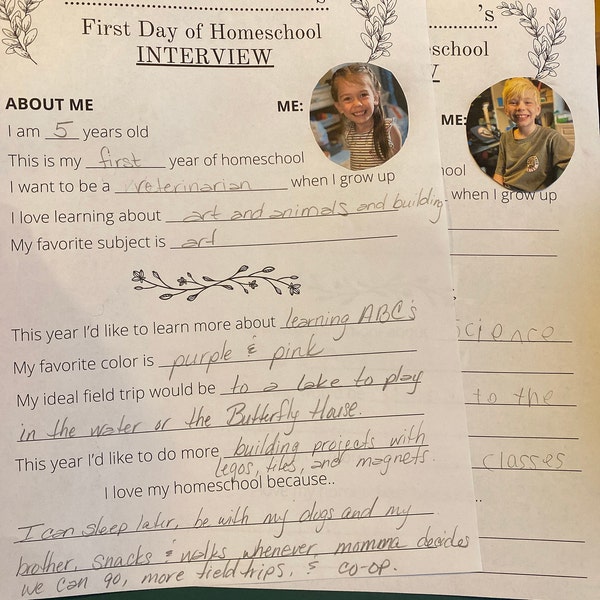 's
First Day of Homeschool
INTERVIEW
ABOUT ME ME:
I am 5 years old
This is my first year of homeschool
I want to be a veterinarian when I grow up
I love learning about art and animals and building
My favorite subject is art
This year I'd like to learn more about learning ABC's
My favorite color is purple & pink
My ideal field trip would be to a lake to play
in the water or the Butterfly House.
This year I'd like to do more building projects with
legos, tiles, and magnets.
I love my homeschool because..
I can sleep later, be with my dogs and my
brother, snacks & walks whenever momma decides
we can go, more field trips, & co-op.
's
school
ME:
when I grow up
science
to the
classes